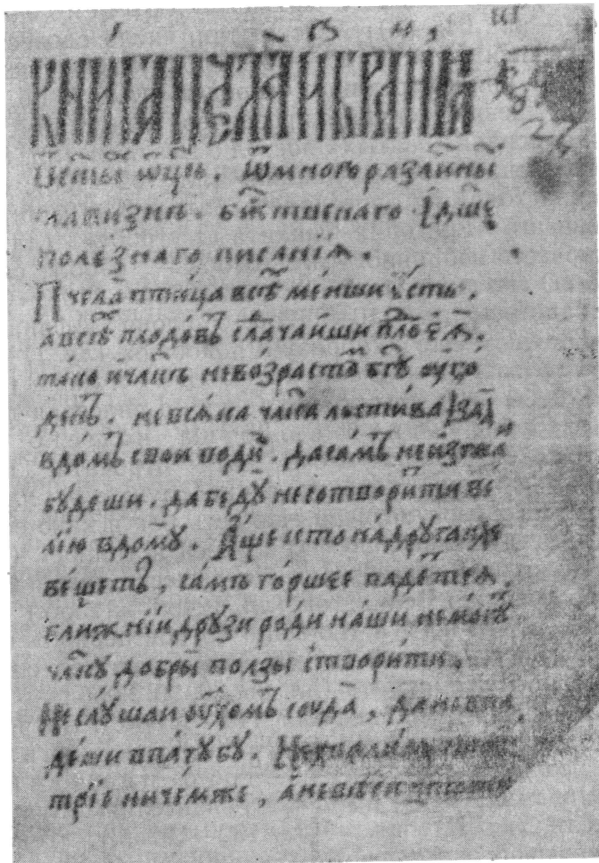 КНИГА ПЧЕЛА ИЗБРАНІѦ
ѿц҃ъ. Ѿ многоразли́чны
главизнъ. бж҃твенаго І дш҃е
поле́знаго писанїѧ.
Пчела̀ птица всѣ ме́нши есть.
а всѣ плодовъ слачайши пло еѧ.
тако и чл҃къ не во́зрасто бг҃у ѹго́
денъ. не всѧка чл҃ка льсти́ва
в домъ свои води. да самъ не изгна
будеши. да беду̀ не сотвори́ти ве́
лїю в дому. Аще кто на друга лже
ве́щетъ, самъ го́ршее паде́тсѧ.
ближнїи друзи роди на́ши не мо́гу
чл҃ку добры ползы створи́ти.
Не слу́шаи ѹ́хомъ соуда, да не впа
де́ши в пагубу. Не хвали
трїе ниче́мже, а не